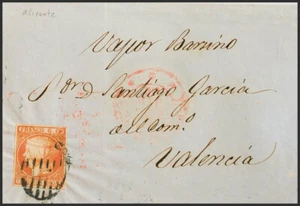 alicante
Vapor Barcino
Sor D. Santiago Garcia
del Com.º
Valencia
FRANCO 6 Cs